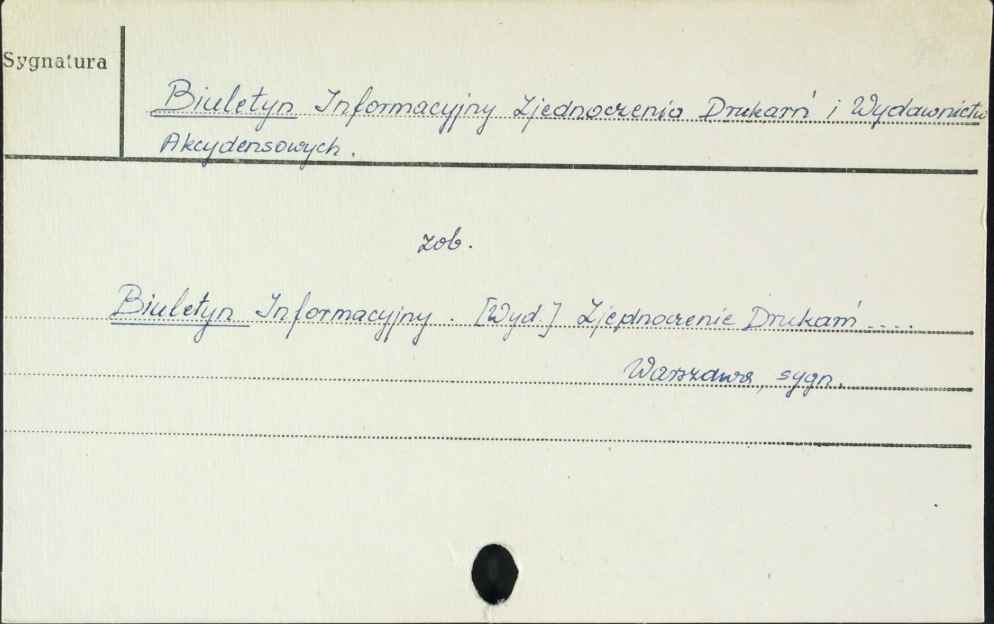 Sygnatura
Biuletyn Informacyjny Zjednoczenia Drukarń i Wydawnictw
Akcydensowych.
zob.
Biuletyn Informacyjny. [Wyd.] Zjednoczenie Drukarń ....
Warszawa, sygn.